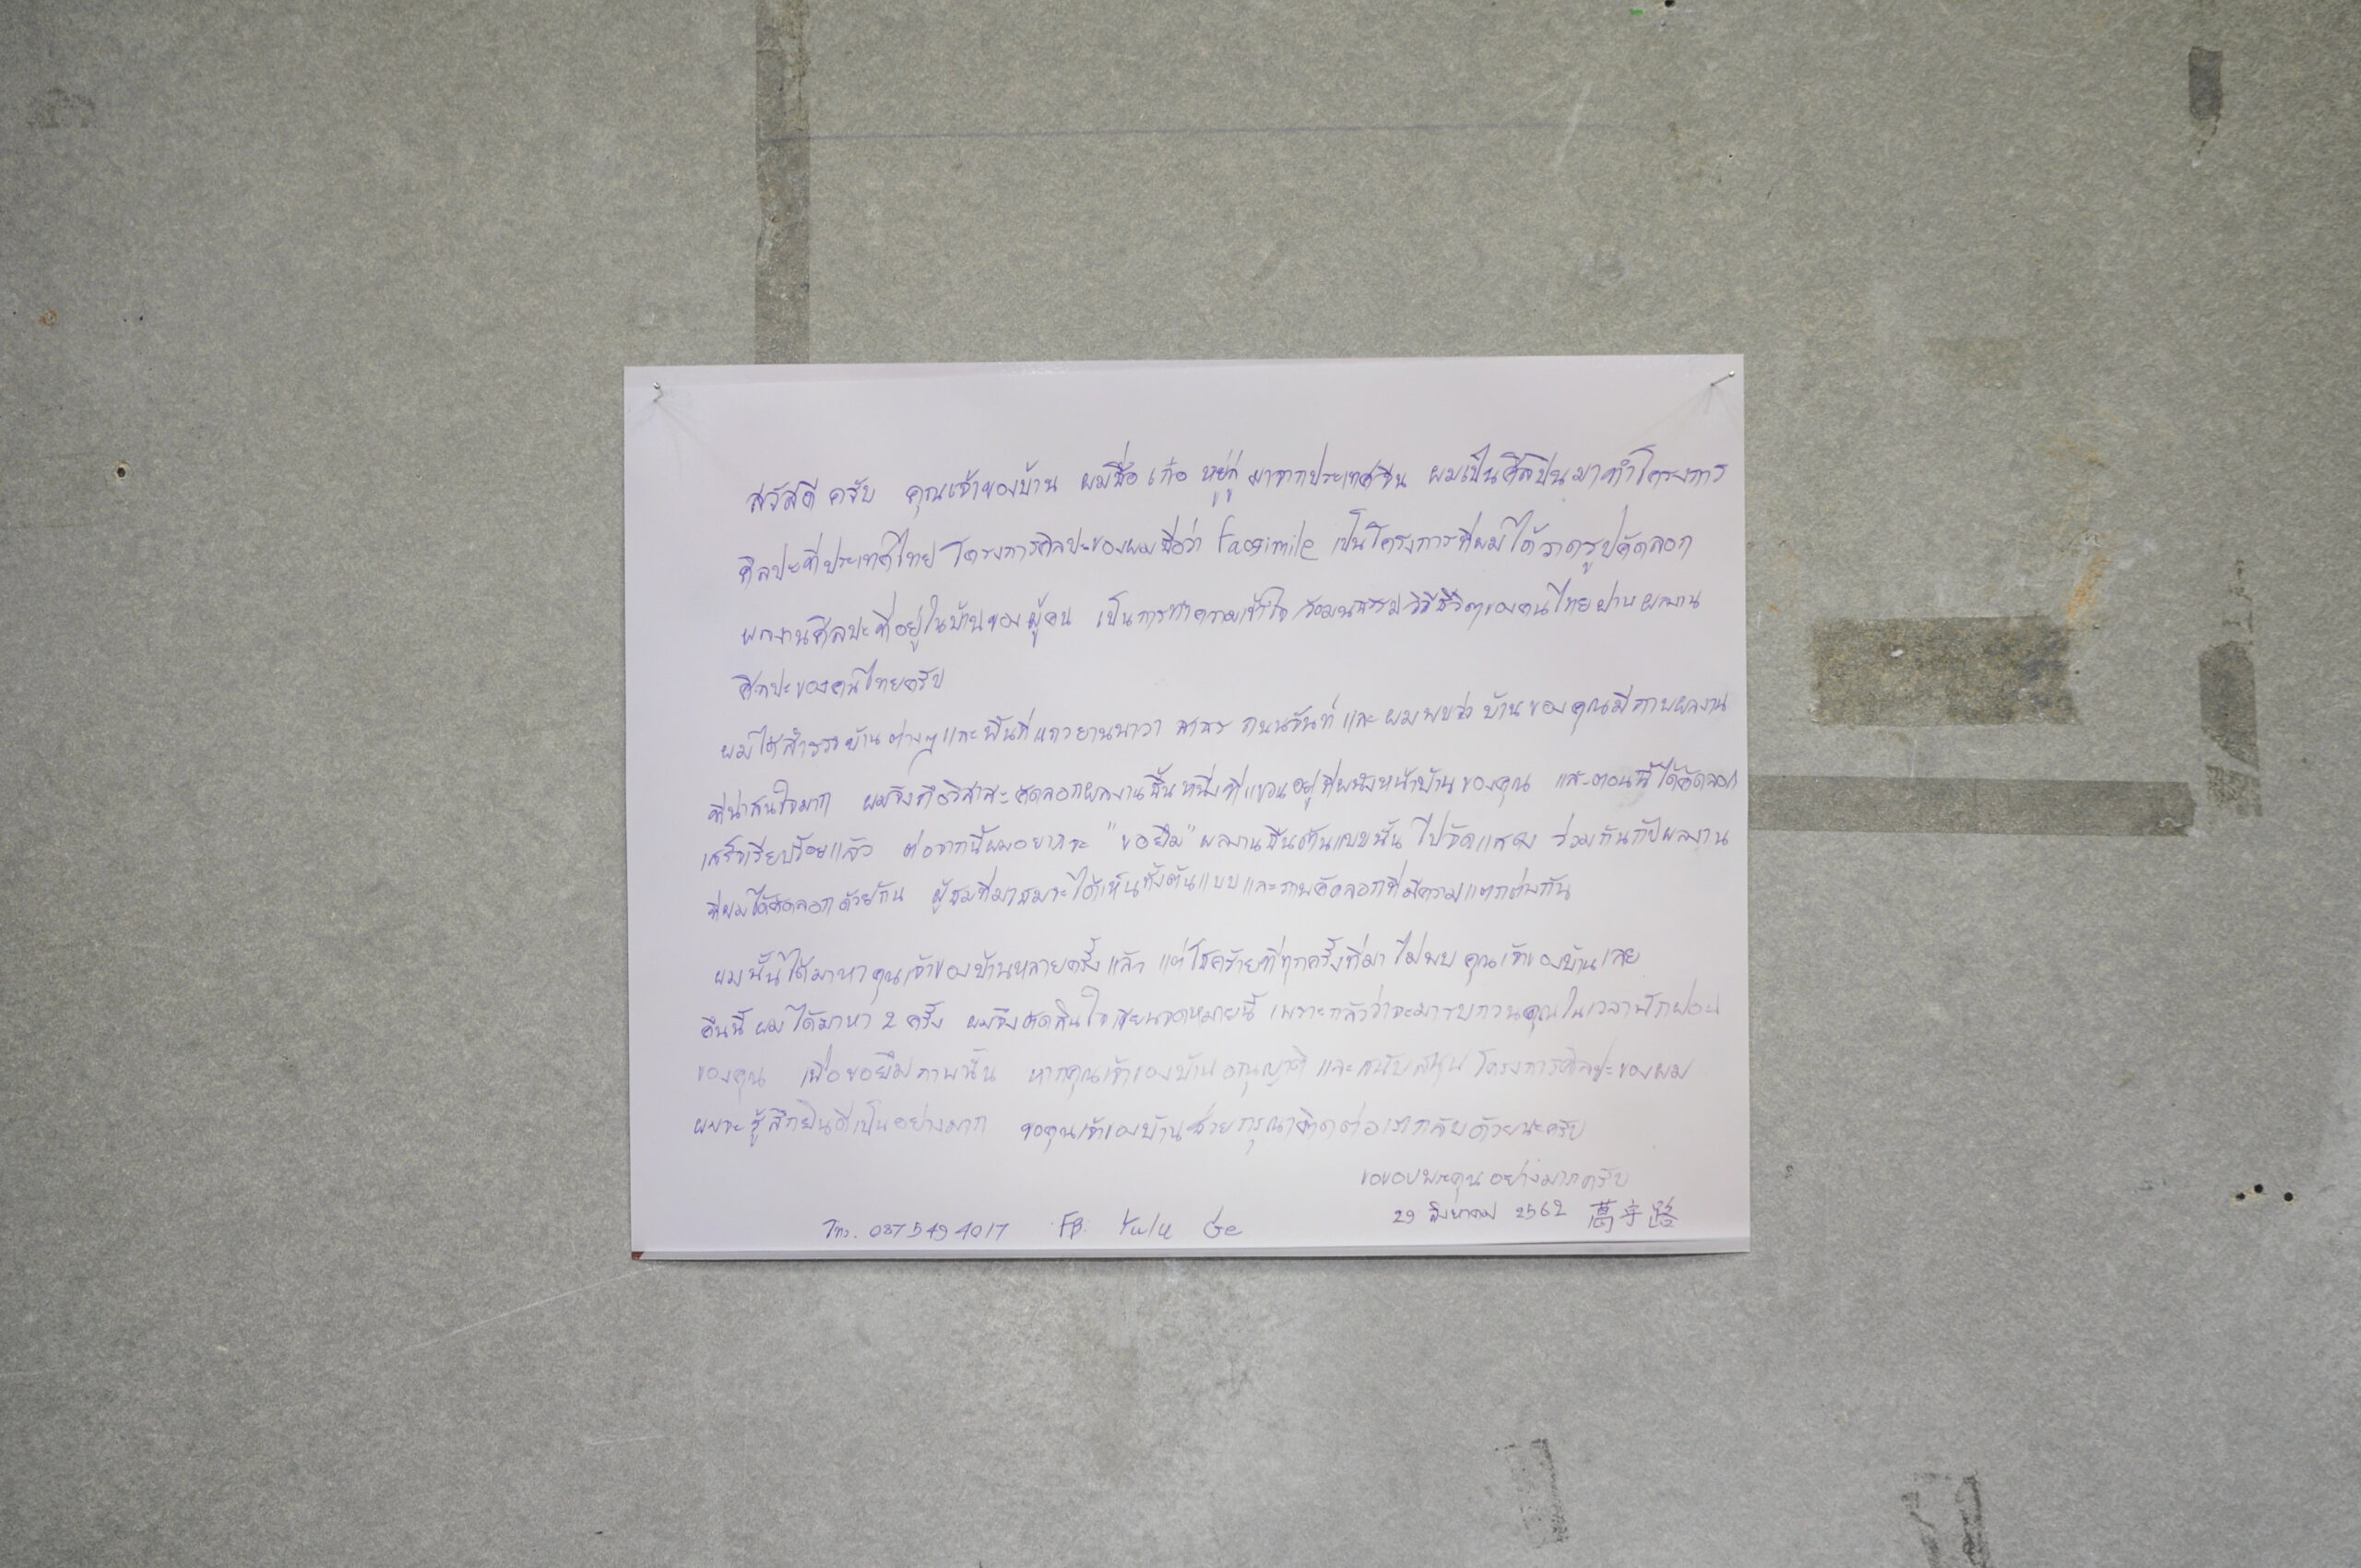 สวัสดี ครับ คุณเจ้าของบ้าน ผมชื่อ เก้อ หยู่ลู่ มาจากประเทศจีน ผมเป็นศิลปินมาทำโครงการ
ศิลปะที่ประเทศไทย โครงการศิลปะของผมชื่อว่า facsimile เป็นโครงการที่ผมได้วาดรูปคัดลอก
ผลงานศิลปะที่อยู่ในบ้านของผู้คน เป็นการทำความเข้าใจ วัฒนธรรม วิถีชีวิตของคนไทยผ่านผลงาน
ศิลปะของคนไทยครับ
ผมได้สำรวจบ้านต่างๆและพื้นที่แถวยานนาวา สาธร ถนนจันทน์ และผมพบว่า บ้านของคุณมีภาพผลงาน
ที่น่าสนใจมาก ผมจึงถือวิสาสะคัดลอกผลงานชิ้นหนึ่งที่แขวนอยู่ที่ผนังหน้าบ้านของคุณ และตอนนี้ได้คัดลอก
เสร็จเรียบร้อยแล้ว ต่อจากนี้ผมอยากจะ "ขอยืม" ผลงานชิ้นต้นแบบนั้น ไปจัดแสดง ร่วมกันกับผลงาน
ที่ผมได้คัดลอกด้วยกัน ผู้ชมที่มาชมจะได้เห็นทั้งต้นแบบและภาพคัดลอกที่มีความแตกต่างกัน
ผมนั้นได้มาหาคุณเจ้าของบ้านหลายครั้งแล้ว แต่โชคร้ายที่ทุกครั้งที่มา ไม่พบ คุณเจ้าของบ้านเลย
คืนนี้ ผมได้มาหา 2 ครั้ง ผมจึงตัดสินใจเขียนจดหมายนี้ เพราะกลัวว่าจะมารบกวนคุณในเวลาพักผ่อน
ของคุณ เพื่อขอยืมภาพนั้น หากคุณเจ้าของบ้านอนุญาติ และสนับสนุน โครงการศิลปะของผม
ผมจะรู้สึกยินดีเป็นอย่างมาก ขอคุณเจ้าของบ้านช่วยกรุณาติดต่อเรากลับด้วยนะครับ
ขอขอบพระคุณอย่างมากครับ
29 สิงหาคม 2562 葛宇路
โทร. 0875494017 FB. Yulu Ge